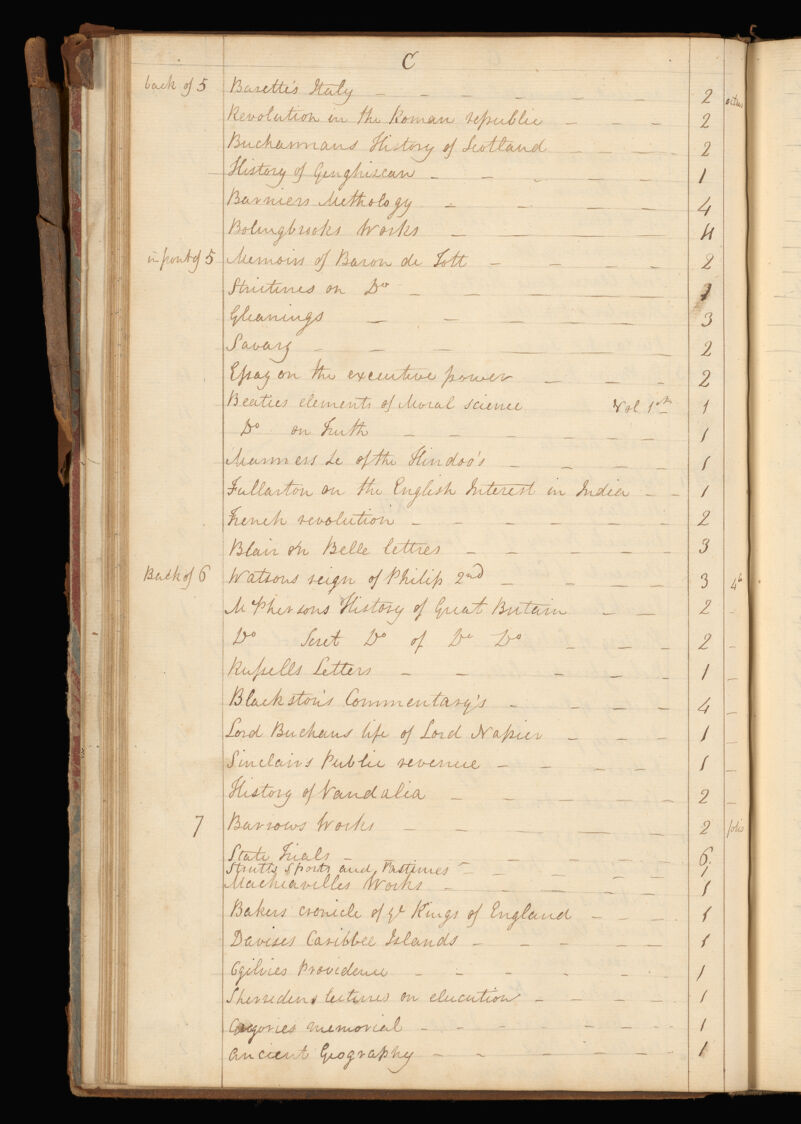 C
back of 5 Baretti's Italy - - - - - - 2 octavo
Revolution in the Roman republic - - - 2
Buchannans History of Scotland - - - 2
History of Genghiscan - - - - - 1
Banniers Methology - - - - 4
Bolingbrooks Works - - - - 4
in front of 5 Memoirs of Baron de Tott - - - - 2
Strictures on Do - - - - - 1
Gleanings - - - - - 3
Savary - - - - - - 2
Essay on the executive power - - - 2
Beaties elements of Moral science Vol 1st 1
Do on Truth - - - - - 1
Manners &c of the Hindoo's - - - - 1
Fullarton on the English Interest in India - - 1
French revolution - - - - - - 2
Blair on Belle lettres - - - - - 3
Back of 6 Watsons reign of Philip 2nd - - - - 3 4to
McPhersons History of Great Britain - - 2 -
Do Secret Do of Do Do - - - 2 -
Russells Letters - - - - - - 1 -
Blackston's Commentary's - - - - 4 -
Lord Buchans life of Lord Napier - - - 1 -
Sinclairs Public revenue - - - - - 1 -
History of Vandalia - - - - - 2 -
7 Barrows Works - - - - - 2 folio
State Trials - - - - - 6
Strutts Sports and Pastimes - - - - 1
Machiavilles Works - - - - - 1
Bakers cronicle of ye Kings of England - - - 1
Davises Caribbee Islands - - - - - 1
Ogilvies Providence - - - - - - 1
Sherridens lectures on elecution - - - - 1
Gregories memorial - - - - - - 1
Ancient Geography - - - - - 1